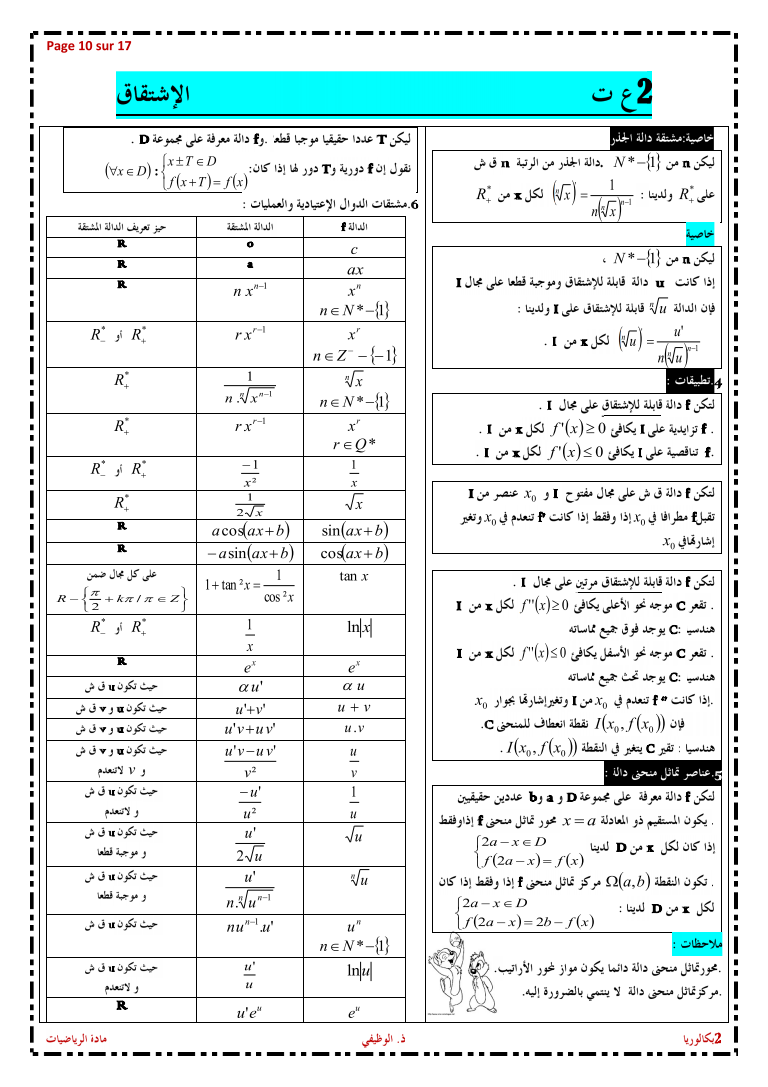 Page 10 sur 17
2ع ت الإشتقاق
خاصية:مشتقة دالة الجذر
ليكن n من N*−{1} .دالة الجذر من الرتبة n ق ش
على R₊* ولدينا : (ⁿ√x)' = 1 / n(ⁿ√x)ⁿ⁻¹ لكل x من R₊*
خاصية
ليكن n من N*−{1} ،
إذا كانت u دالة قابلة للإشتقاق وموجبة قطعا على مجال I
فإن الدالة ⁿ√u قابلة للإشتقاق على I ولدينا :
(ⁿ√u)' = u' / n(ⁿ√u)ⁿ⁻¹ لكل x من I .
4.تطبيقات :
لتكن f دالة قابلة للإشتقاق على مجال I .
. f تزايدية على I يكافئ f'(x) ≥ 0 لكل x من I .
.f تناقصية على I يكافئ f'(x) ≤ 0 لكل x من I .
لتكن f دالة ق ش على مجال مفتوح I و x₀ عنصر من I
تقبل f مطرافا في x₀ إذا وفقط إذا كانت f' تنعدم في x₀ وتغير
إشارتها في x₀
لتكن f دالة قابلة للإشتقاق مرتين على مجال I .
. تقعر C موجه نحو الأعلى يكافئ f''(x) ≥ 0 لكل x من I
هندسيا :C يوجد فوق جميع مماساته
. تقعر C موجه نحو الأسفل يكافئ f''(x) ≤ 0 لكل x من I
هندسيا :C يوجد تحث جميع مماساته
.إذا كانت f'' تنعدم في x₀ من I وتغير إشارتها بجوار x₀
فإن I(x₀, f(x₀)) نقطة انعطاف للمنحنى C.
هندسيا : تقعر C يتغير في النقطة I(x₀, f(x₀)) .
5.عناصر تماثل منحنى دالة :
لتكن f دالة معرفة على مجموعة D و a و b عددين حقيقيين
. يكون المستقيم ذو المعادلة x = a محور تماثل منحنى f إذاوفقط
إذا كان لكل x من D لدينا { 2a − x ∈ D
f(2a − x) = f(x)
. تكون النقطة Ω(a,b) مركز تماثل منحنى f إذا وفقط إذا كان
لكل x من D لدينا : { 2a − x ∈ D
f(2a − x) = 2b − f(x)
ملاحظات :
.محورتماثل منحنى دالة دائما يكون مواز لمحور الأراتيب.
.مركزتماثل منحنى دالة لا ينتمي بالضرورة إليه.
ليكن T عددا حقيقيا موجبا قطعا .و f دالة معرفة على مجموعة D .
نقول إن f دورية و T دور لها إذا كان: (∀x ∈ D): { x ± T ∈ D
f(x + T) = f(x)
6.مشتقات الدوال الإعتيادية والعمليات :
الدالة f الدالة المشتقة حيز تعريف الدالة المشتقة
c 0 R
ax a R
xⁿ n ∈ N*−{1} n xⁿ⁻¹ R
xʳ n ∈ Z⁻ − {−1} r xʳ⁻¹ R₊* أو R₋*
ⁿ√x n ∈ N*−{1} 1 / n.ⁿ√xⁿ⁻¹ R₊*
xʳ r ∈ Q* r xʳ⁻¹ R₊*
1/x −1/x² R₊* أو R₋*
√x 1/2√x R₊*
sin(ax + b) a cos(ax + b) R
cos(ax + b) − a sin(ax + b) R
tan x 1 + tan²x = 1/cos²x على كل مجال ضمن
R − {π/2 + kπ / π ∈ Z}
ln|x| 1/x R₊* أو R₋*
eˣ eˣ R
α u α u' حيث تكون u ق ش
u + v u'+v' حيث تكون u و v ق ش
u.v u'v + uv' حيث تكون u و v ق ش
u/v (u'v − uv')/v² حيث تكون u و v ق ش
و v لاتنعدم
1/u −u'/u² حيث تكون u ق ش
و لاتنعدم
√u u'/2√u حيث تكون u ق ش
و موجبة قطعا
ⁿ√u u'/n.ⁿ√uⁿ⁻¹ حيث تكون u ق ش
و موجبة قطعا
uⁿ n ∈ N*−{1} nuⁿ⁻¹.u' حيث تكون u ق ش
ln|u| u'/u حيث تكون u ق ش
و لاتنعدم
eᵘ u'eᵘ R
2بكالوريا ذ. الوظيفي مادة الرياضيات